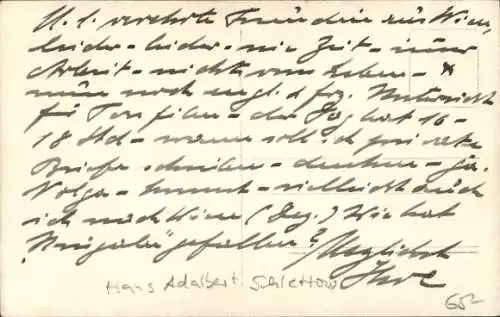 M. l. verehrte Freundin aus Wien,
leider – leider – nie Zeit – nur
Arbeit – nichts vom Leben –
nun noch engl. & frz. Unterricht
für Tonfilm – der Tag hat 16 –
18 Std – wann soll ich private
Briefe schreiben – denken – ja.
Wolga – kommt – vielleicht auch
ich nach Wien (Dez.) Wie hat
gefallen?
Herzlichst
Ihre
Hans Adalbert Schlettow
60-